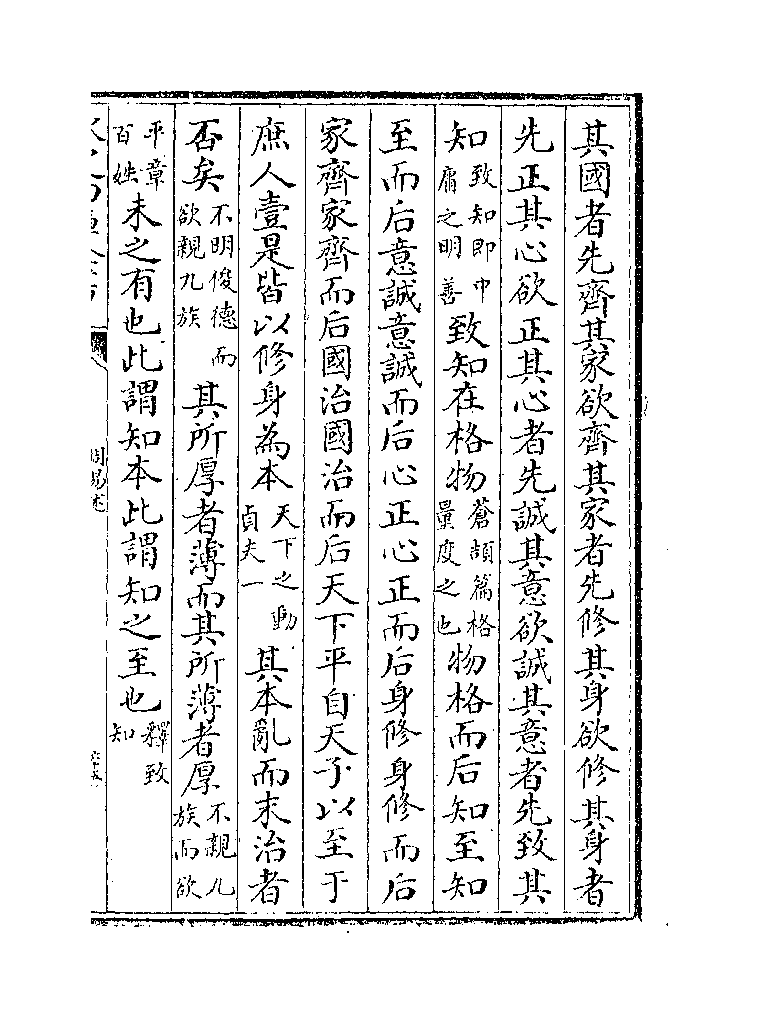 其國者先齊其家欲齊其家者先修其身欲修其身者
先正其心欲正其心者先誠其意欲誠其意者先致其
知致知即中庸之明善致知在格物蒼頡篇格量度之也物格而后知至知
至而后意誠意誠而后心正心正而后身修身修而后
家齊家齊而后國治國治而后天下平自天子以至于
庶人壹是皆以修身為本天下之動貞夫一其本亂而末治者
否矣不明俊德而欲親九族其所厚者薄而其所薄者厚不親九族而欲
平章百姓未之有也此謂知本此謂知之至也釋致知
周易述